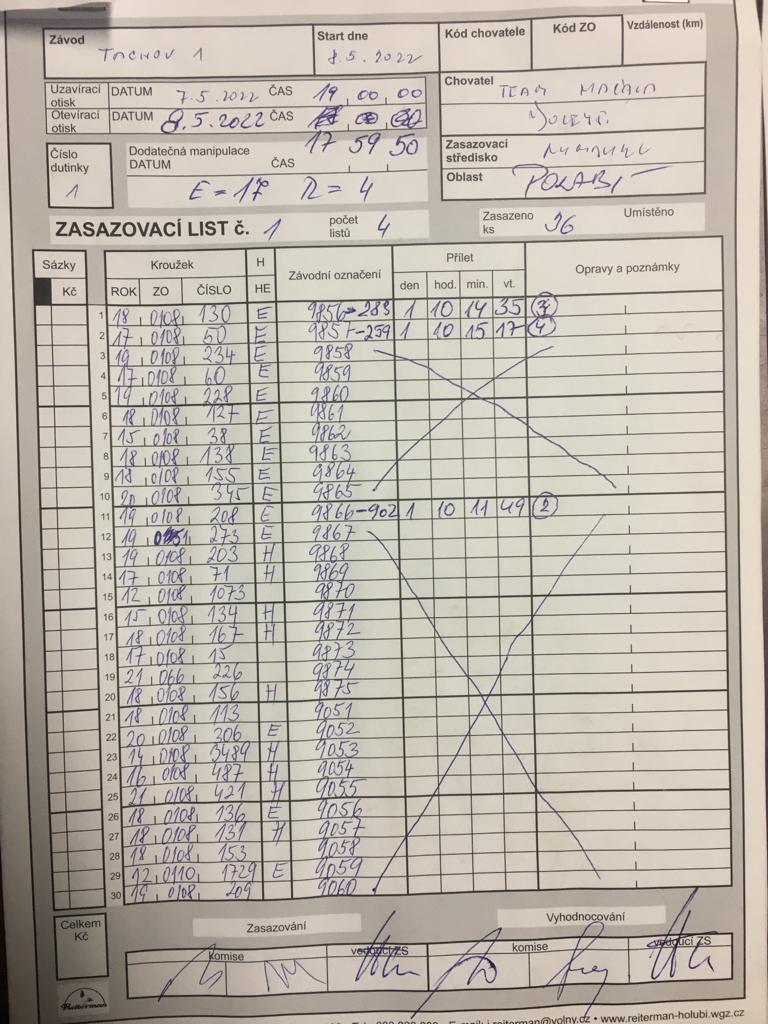 Závod Start dne Kód chovatele Kód ZO Vzdálenost (km)
TACHOV 1 8.5.2022
Uzavírací otisk DATUM 7.5.2022 ČAS 19 00 00
Otevírací otisk DATUM 8.5.2022 ČAS
17 59 50
Chovatel TEAM
Číslo dutinky 1
Dodatečná manipulace
DATUM ČAS
E = 17 R = 4
Zasazovací středisko
Oblast POLABÍ
ZASAZOVACÍ LIST č. 1 počet listů 4 Zasazeno ks 36 Umístěno
Sázky Kroužek H Závodní označení Přílet Opravy a poznámky
Kč ROK ZO ČÍSLO HE den hod. min. vt.
1 18 0108 130 E 9856-283 1 10 14 35 3
2 17 0108 50 E 9857-259 1 10 15 17 4
3 19 0108 234 E 9858
4 17 0108 60 E 9859
5 19 0108 228 E 9860
6 18 0108 127 E 9861
7 15 0108 38 E 9862
8 18 0108 138 E 9863
9 18 0108 155 E 9864
10 20 0108 345 E 9865
11 19 0108 208 E 9866-902 1 10 11 49 2
12 19 273 E 9867
13 19 0108 203 H 9868
14 17 0108 71 H 9869
15 12 0108 1073 9870
16 15 0108 134 H 9871
17 18 0108 167 H 9872
18 17 0108 15 9873
19 21 066 226 9874
20 18 0108 156 H 9875
21 18 0108 113 9051
22 20 0108 306 E 9052
23 14 0108 3489 H 9053
24 16 0108 487 H 9054
25 21 0108 421 H 9055
26 18 0108 136 E 9056
27 18 0108 131 H 9057
28 18 0108 153 9058
29 12 0110 1729 E 9059
30 19 0108 209 9060
Celkem Kč Zasazování Vyhodnocování
komise vedoucí ZS komise vedoucí ZS
Reiterman
E-mail: j.reiterman@volny.cz • www.reiterman-holubi.wgz.cz